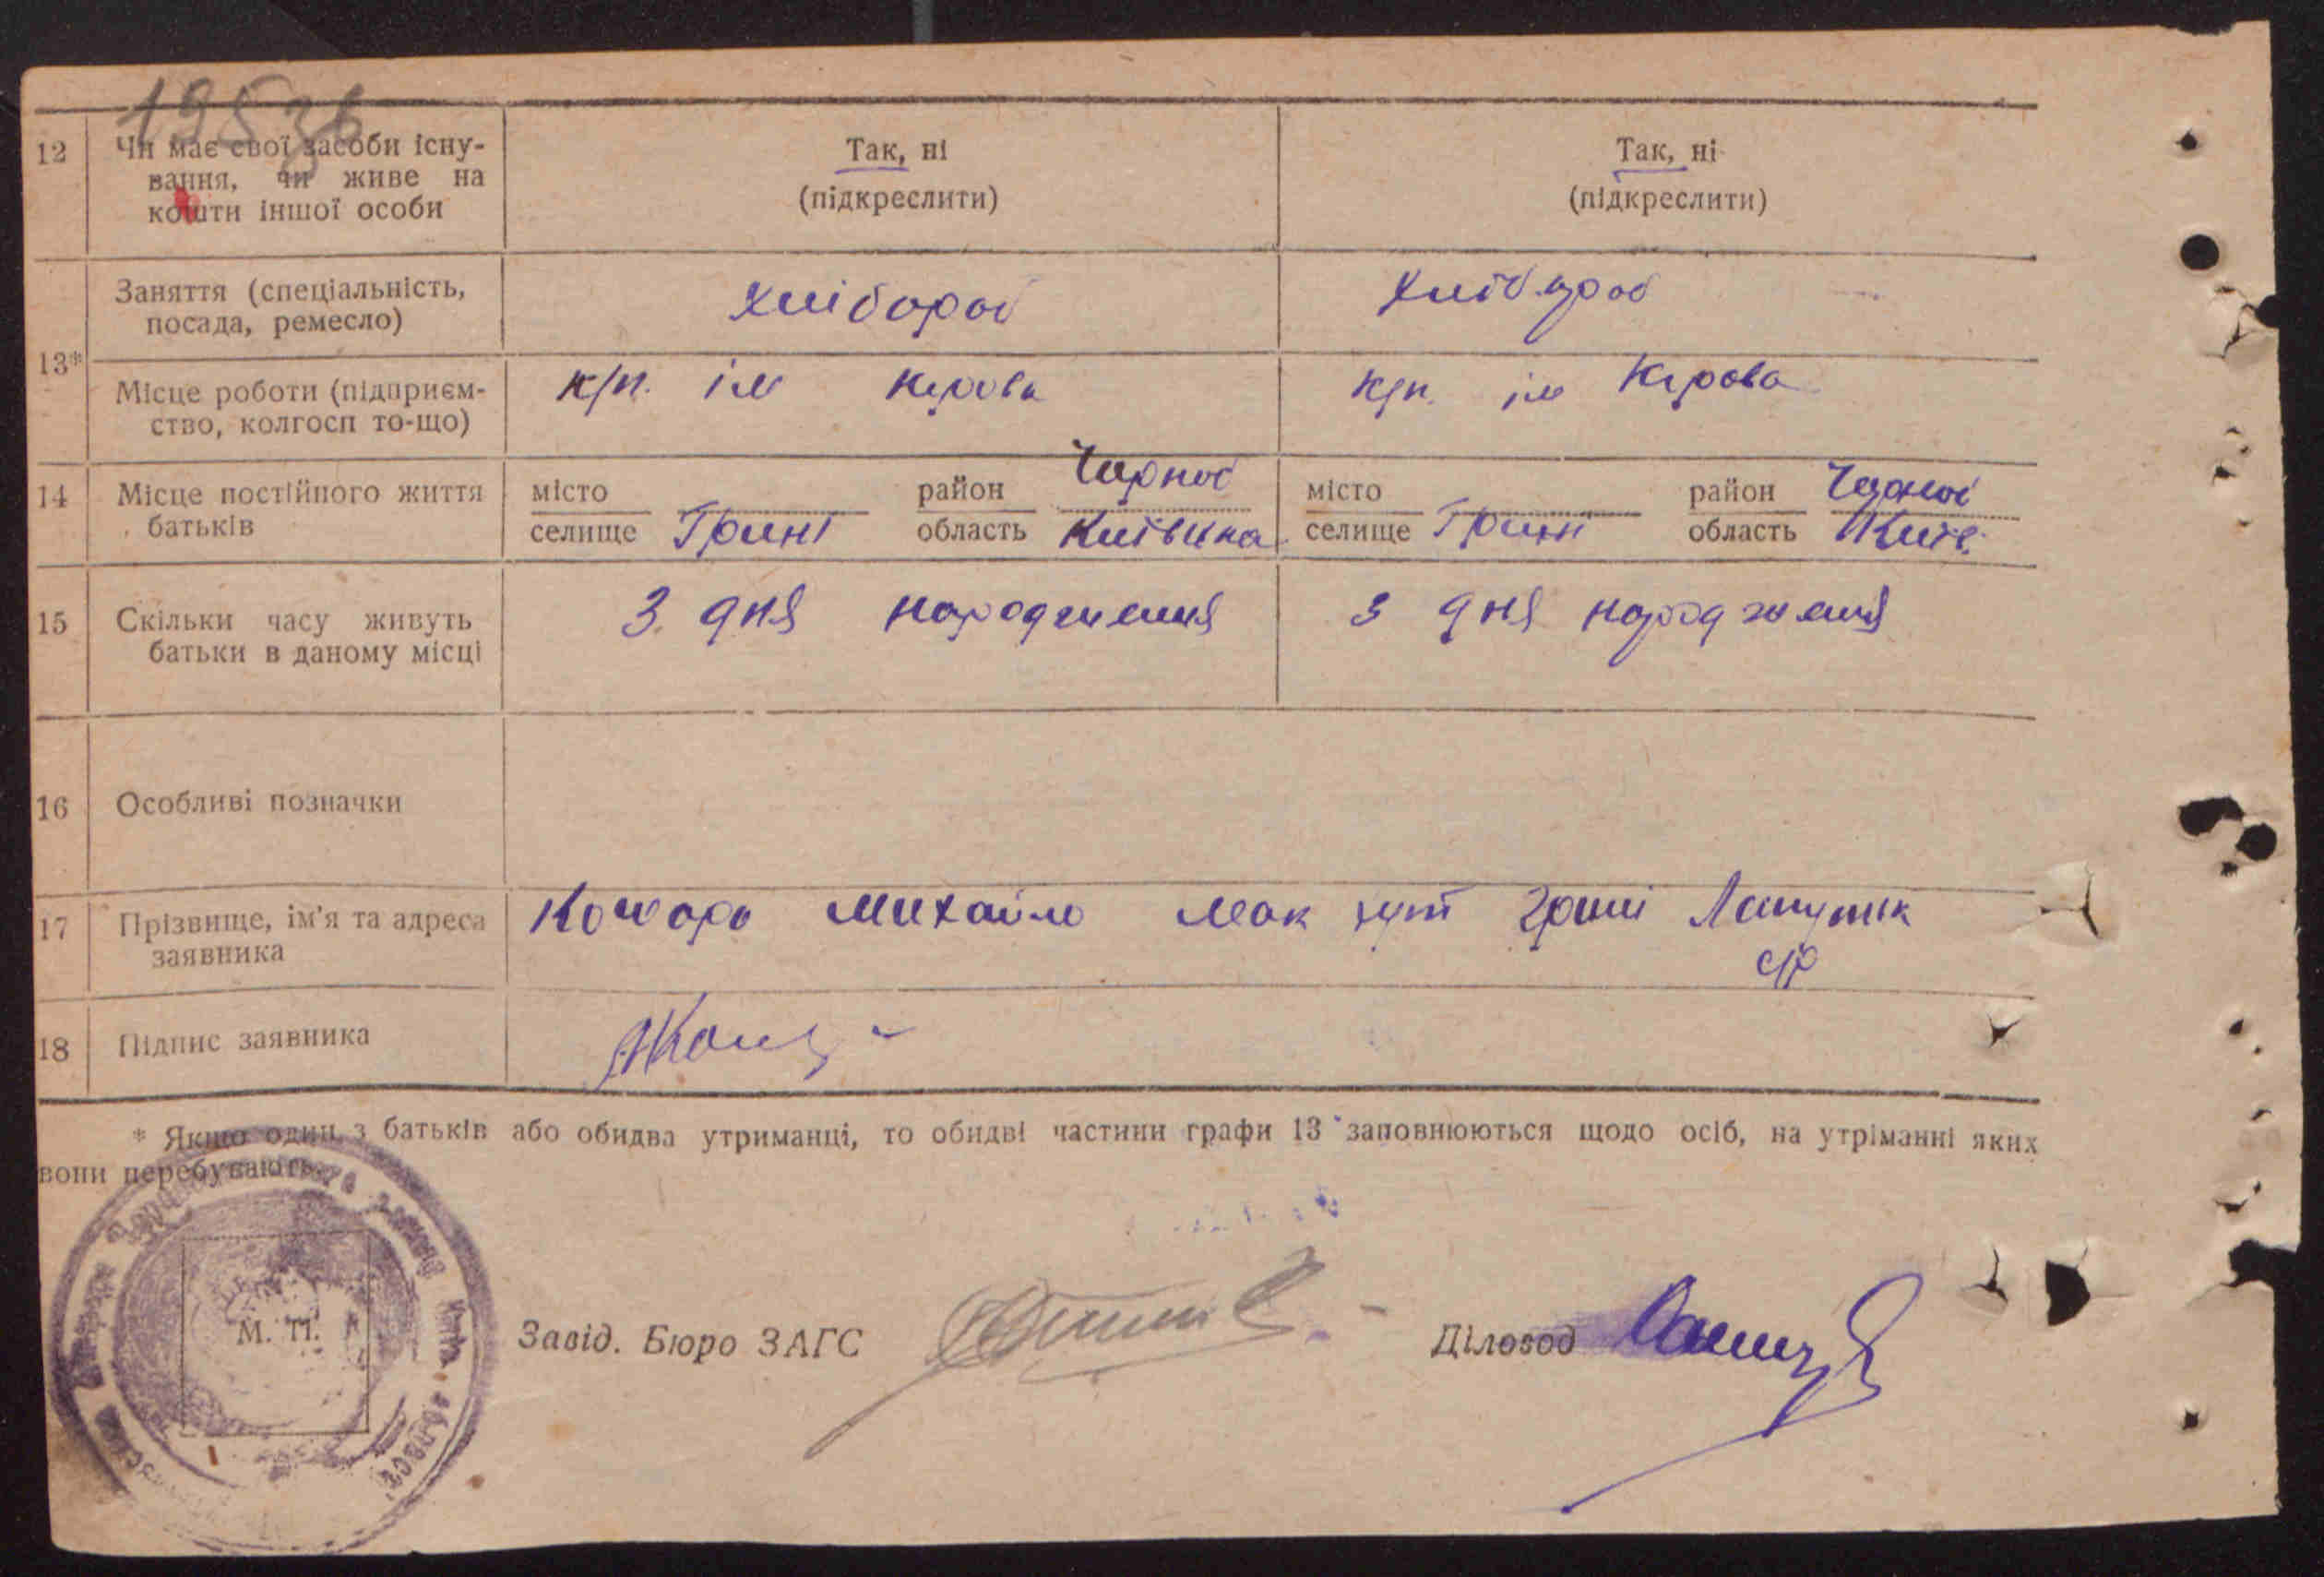 19536
12 Чи має свої засоби існу- Так, ні Так, ні
вання, чи живе на
кошти іншої особи (підкреслити) (підкреслити)
Заняття (спеціальність, хлібороб хлібороб
посада, ремесло)
13*
Місце роботи (підприєм- к/п. ім Кірова к/п. ім Кірова
ство, колгосп то-що)
14 Місце постійного життя місто район Чорноб місто район Чорноб
батьків селище Грині область Київська селище Грині область Київ.
15 Скільки часу живуть З дня народження З дня народження
батьки в даному місці
16 Особливі позначки
17 Прізвище, ім'я та адреса Михайло Мак хут Грині
заявника с/р
18 Підпис заявника
* Якщо один з батьків або обидва утриманці, то обидві частини графи 13 заповнюються щодо осіб, на утріманні яких
вони перебувають.
М. П.
Завід. Бюро ЗАГС Діловод